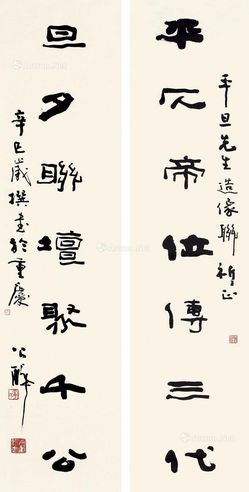 平旦先生造像联 补正
平仄帝位傳三代
旦夕聯壇聚千公
辛巳歲撰書於重慶
公醉